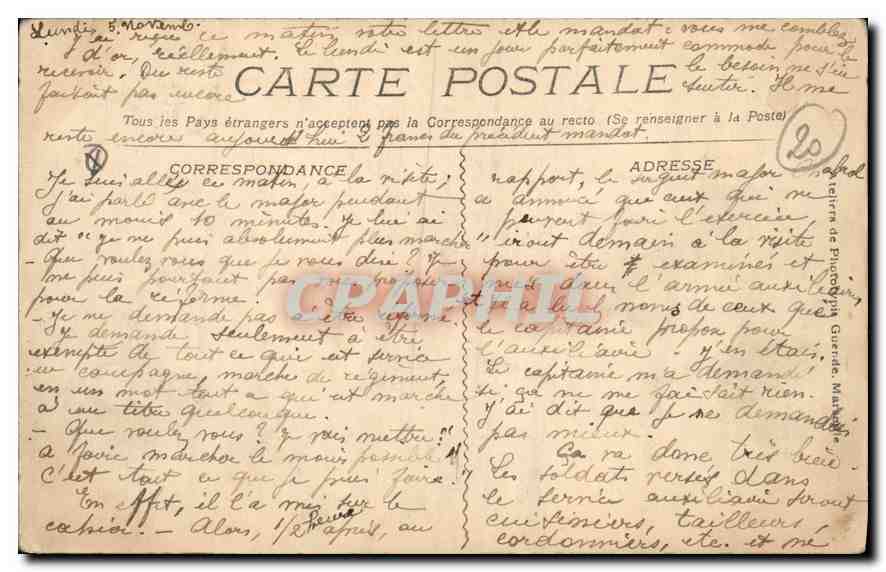 Lundi 5 Novemb.
J'ai reçu ce matin votre lettre et le mandat : vous me comblez
d'or, réellement. Le lundi est un jour parfaitement commode pour le
recevoir. Du reste le besoin ne s'en
faisait pas encore sentir. Il me
CARTE POSTALE
Tous les Pays étrangers n'acceptent pas la Correspondance au recto (Se renseigner à la Poste)
reste encore aujourd'hui 2 francs du précédent mandat.
20
CORRESPONDANCE
Je suis allé ce matin, à la visite ;
j'ai parlé avec le major pendant
au moins 10 minutes. Je lui ai
dit "je ne puis absolument plus marcher"
- Que voulez vous que je vous dise ? Je
ne puis pourtant pas vous proposer
pour la réforme.
- Je ne demande pas à être réformé.
J'y demande seulement à être
exempté de tout ce qui est service
en campagne, marche de régiment,
en un mot tout ce qui est marche
à un titre quelconque.
- Que voulez vous ? Je vais mettre :"
à faire marcher le moins possible"
C'est tout ce que je puis faire."
En effet, il l'a mis sur le
cahier. - Alors, 1/2 heure après, au
ADRESSE
rapport, le sergent major
a annoncé que ceux qui ne
peuvent faire l'exercice,
iront demain à la visite
pour être examinés et
mis dans l'armée auxiliaire
et a lu les noms de ceux que
le capitaine propose pour
l'auxiliaire - j'en étais.
Le capitaine m'a demandé
si ça ne me faisait rien.
J'ai dit que je ne demandais
pas mieux.
Ça va donc très bien.
Les soldats versés dans
le service auxiliaire seront
cuisiniers, tailleurs
cordonniers, etc. et ne
Ateliers de Phototypie Guende, Marseille
CPAPHIL